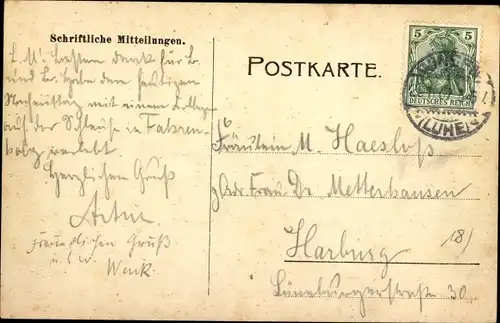 Schriftliche Mitteilungen.
L. M! Besten Dank für B.
und Br. Habe den heutigen
Nachmittag mit einem
auf der Schleuse in
verlebt
Herzlichen Gruß
Artur
freundlichen Gruß
u. s. w.
POSTKARTE.
5 5
DEUTSCHES REICH
Fräulein M. Haesloß
Adr. Frau Dr. Mettenhausen
Harburg
18)
Lüneburgerstraße 30.